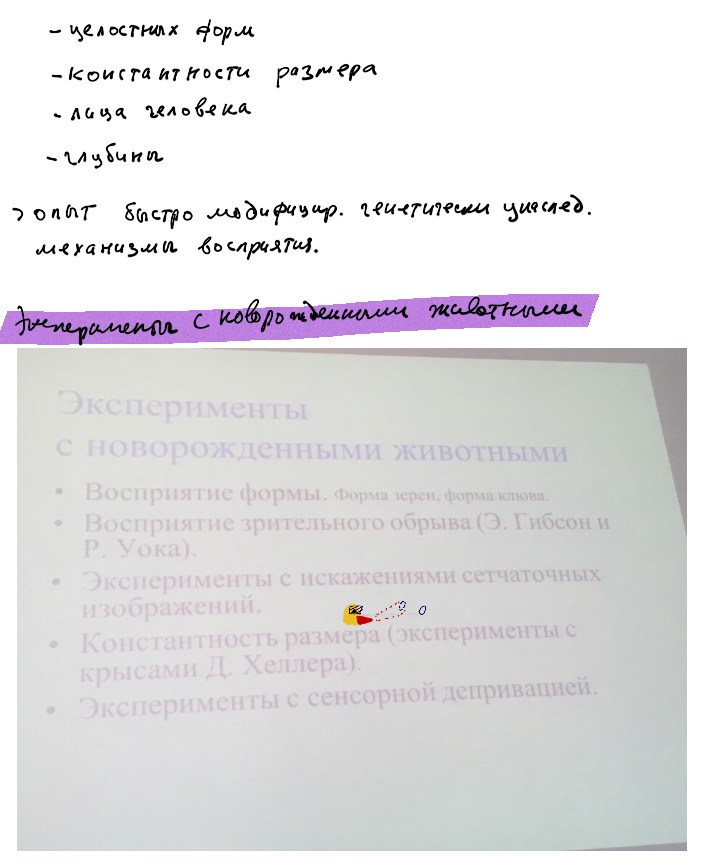 - целостных форм
- константности размера
- лица человека
- глубины
> опыт быстро модифицир. генетически унаслед.
механизмы восприятия.
Эксперименты с новорожденными животными
Эксперименты
с новорожденными животными
• Восприятие формы. Форма зерен, форма клюва.
• Восприятие зрительного обрыва (Э. Гибсон и
Р. Уока).
• Эксперименты с искажениями сетчаточных
изображений.
• Константность размера (эксперименты с
крысами Д. Хеллера).
• Эксперименты с сенсорной депривацией.